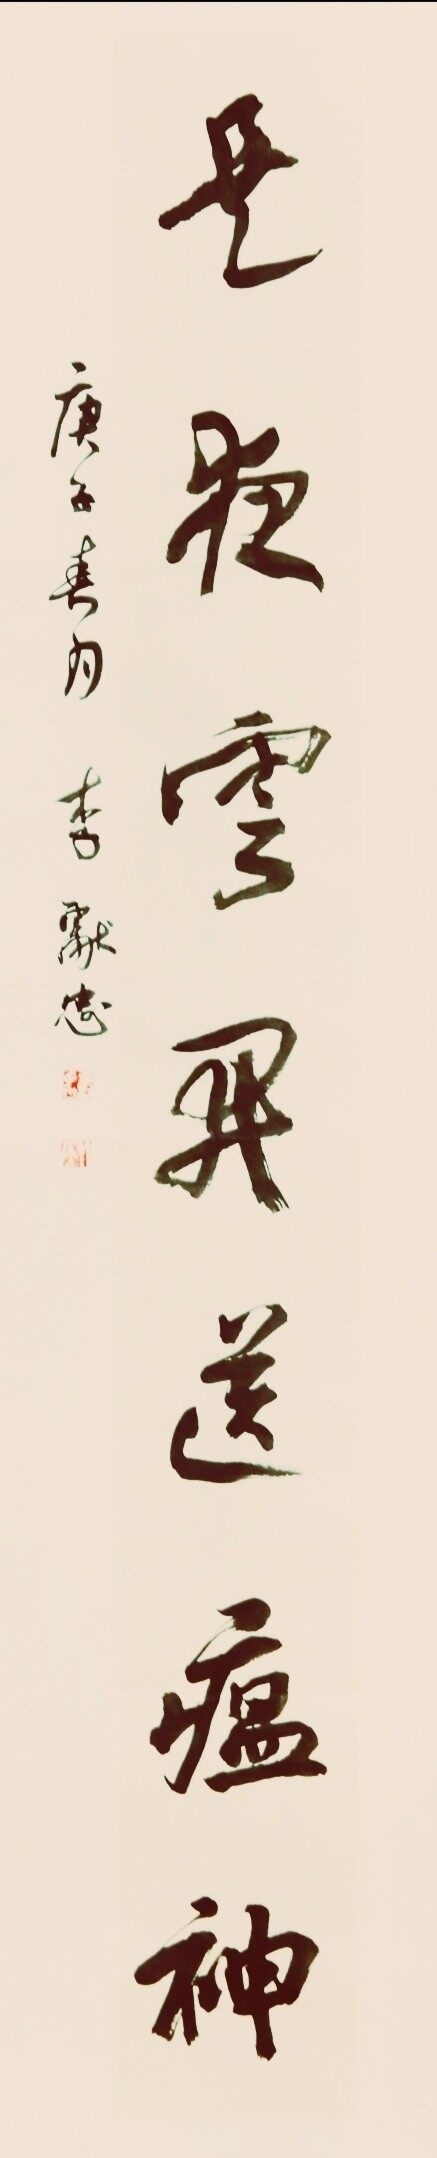 長夜雲開送瘟神
庚子春月 李獻忠